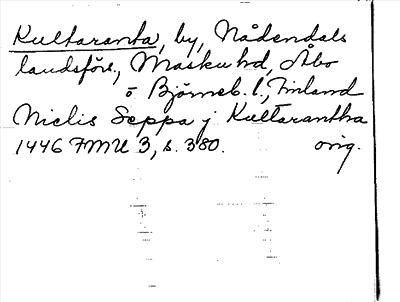 Kultaranta, by, Nådendals
landsförs., Masku hd, Åbo
o Björneb. l., Finland
Niclis Seppa j Kultarantha
1446 FMU 3, s. 380. orig.